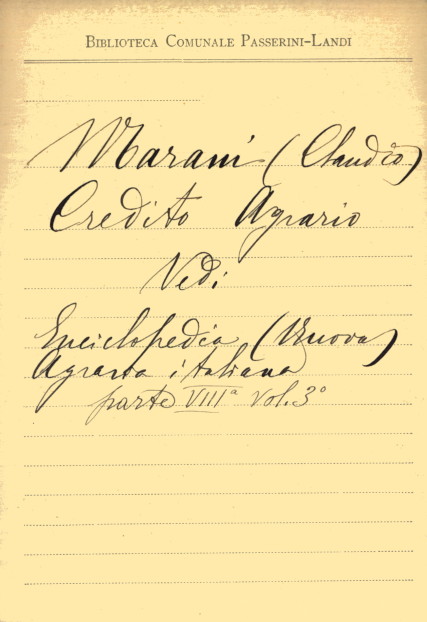 BIBLIOTECA COMUNALE PASSERINI-LANDI
Marani (Claudio)
Credito Agrario
Vedi
Enciclopedia (Nuova)
Agraria italiana
parte VIIIª vol. 3º